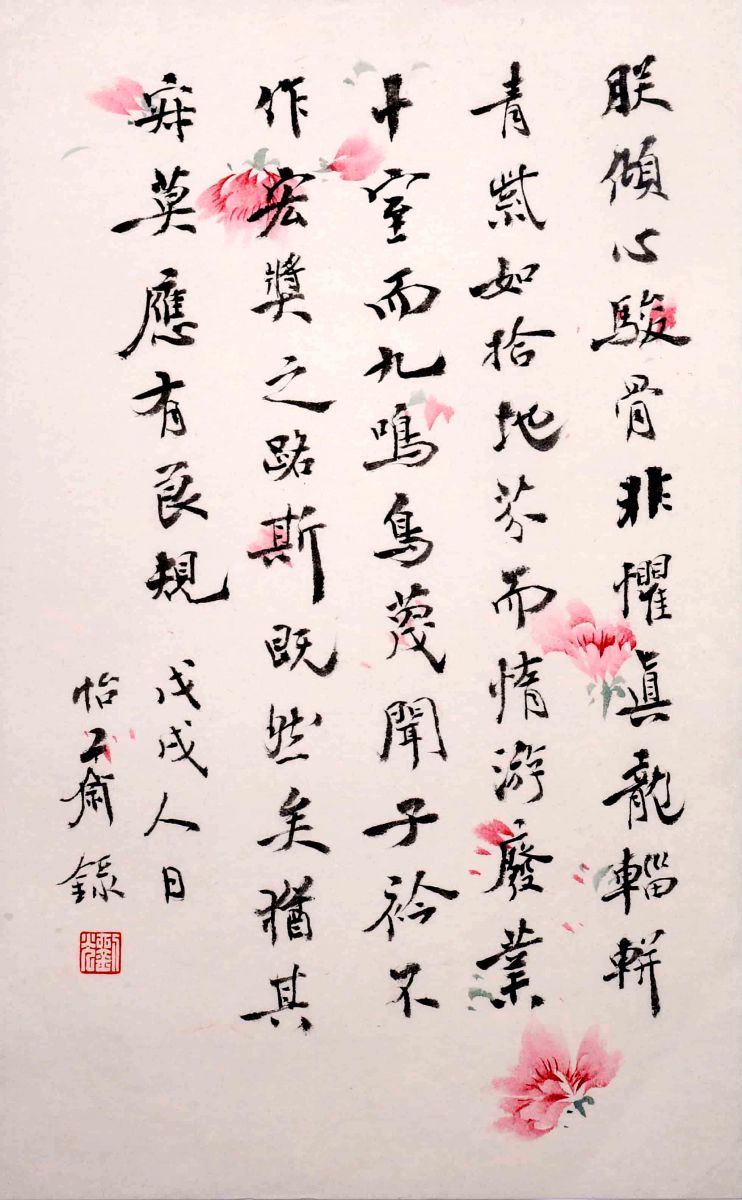 朕傾心駿骨非懼真龍輜軿
青紫如拾地芥而惰游廢業
十室而九鳴鳥蔑聞子衿不
作宏獎之路斯既然矣猶其
寂莫應有良規 戊戌人日
怡齋錄